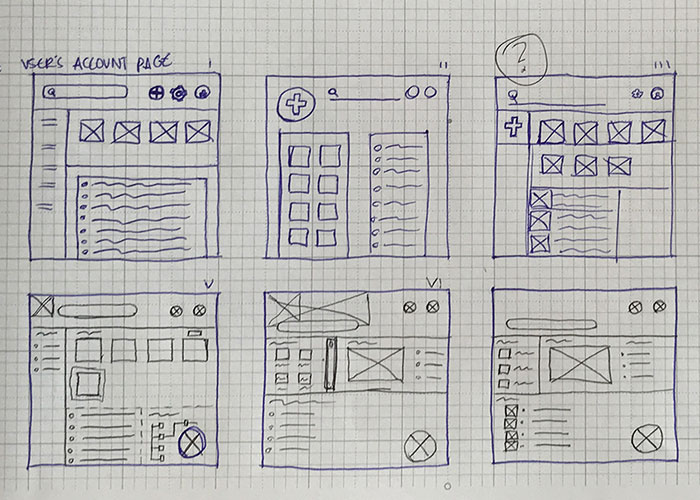 USER'S ACCOUNT PAGE
I
II
?
III
V
VI